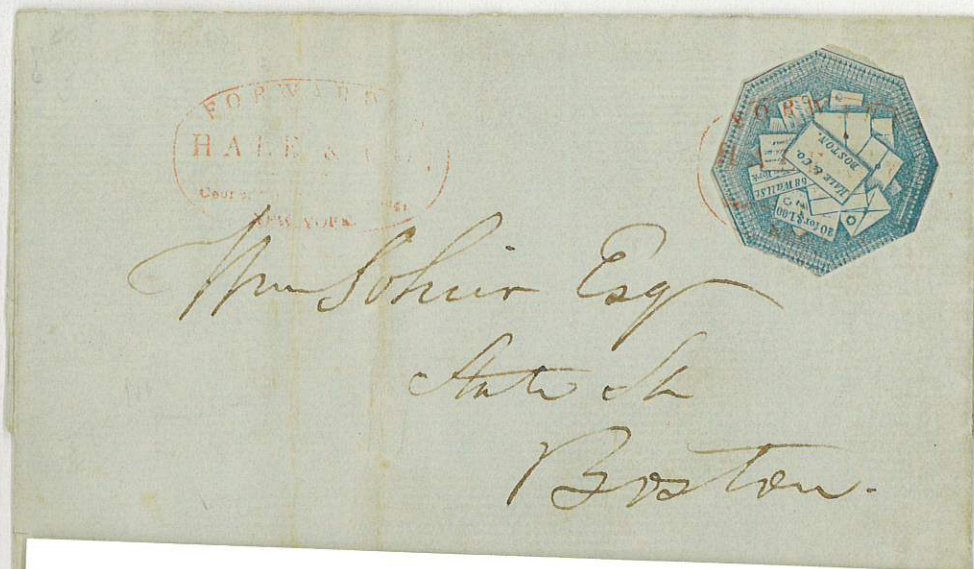 FORWARD
HALE & CO.
NEW YORK.
FORW
HALE & CO.
BOSTON.
58 Wall St.
20 for $1.00
Wm Sohier Esq
State St
Boston.